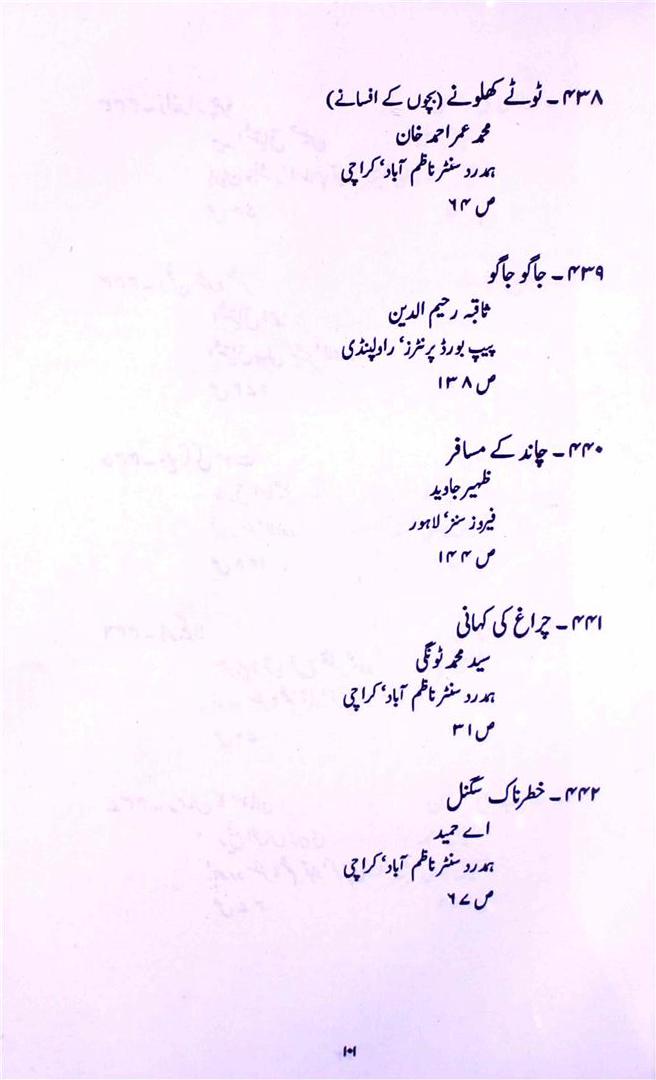 ۴۳۸ ۔ ٹوٹے کھلونے (بچوں کے افسانے)
محمد عمر احمد خان
ہمدرد سنٹر ناظم آباد‘ کراچی
ص ۶۴
۴۳۹ ۔ جاگو جاگو
ثاقبہ رحیم الدین
پیپ بورڈ پرنٹرز‘ راولپنڈی
ص ۱۳۸
۴۴۰ ۔ چاند کے مسافر
ظہیر جاوید
فیروز سنز‘ لاہور
ص ۱۴۴
۴۴۱ ۔ چراغ کی کہانی
سید محمد ٹونکی
ہمدرد سنٹر ناظم آباد‘ کراچی
ص ۳۱
۴۴۲ ۔ خطرناک سگنل
اے حمید
ہمدرد سنٹر ناظم آباد‘ کراچی
ص ۶۷
۱۰۱